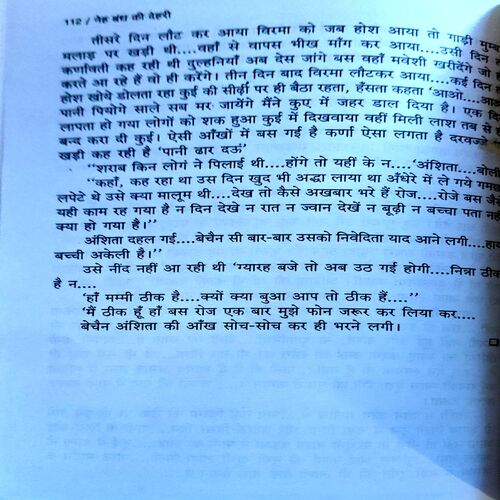 112 / नेह बंध की देहरी
तीसरे दिन लौट कर आया विरमा को जब होश आया तो गाड़ी
मलाड़ पर खड़ी थी....वहाँ से वापस भीख माँग कर आया....उसी दिन
कर्णावती कह रही थी दुल्हनियाँ अब देस जांगे बस वहाँ मवेशी खरीदेंगे जो
करते आ रहे हैं वो ही करेंगे। तीन दिन बाद विरमा लौटकर आया....कई दिन
होश खोये डोलता रहा कुई की सीढ़ी पर ही बैठा रहता, हँसता कहता 'आओ....
पानी पियोगे साले सब मर जायेंगे मैंने कुए में जहर डाल दिया है। एक दि
लापता हो गया लोगों को शक हुआ कुई में दिखवाया वहीं मिली लाश तब से
बन्द करा दी कुई। ऐसी आँखों में बस गई है कर्णा ऐसा लगता है दरवज्जे
खड़ी कह रही है 'पानी ढार दऊं'
"शराब किन लोगं ने पिलाई थी....होंगे तो यहीं के न....'अंशिता....बोली
"कहाँ, कह रहा था उस दिन खुद भी अद्धा लाया था अँधेरे में ले गये गम
लपेटे थे उसे क्या मालूम थी....देख तो कैसे अखबार भरे हैं रोज....रोजे बस जै
यही काम रह गया है न दिन देखे न रात न ज्वान देखें न बूढ़ी न बच्चा पता न
क्या हो गया है।"
अंशिता दहल गई....बेचैन सी बार-बार उसको निवेदिता याद आने लगी....हाय
बच्ची अकेली है।"
उसे नींद नहीं आ रही थी 'ग्यारह बजे तो अब उठ गई होगी....निन्ना ठीक
है न....
'हाँ मम्मी ठीक है....क्यों क्या बुआ आप तो ठीक हैं...."
'मैं ठीक हूँ हाँ बस रोज एक बार मुझे फोन जरूर कर लिया कर....
बेचैन अंशिता की आँख सोच-सोच कर ही भरने लगी।